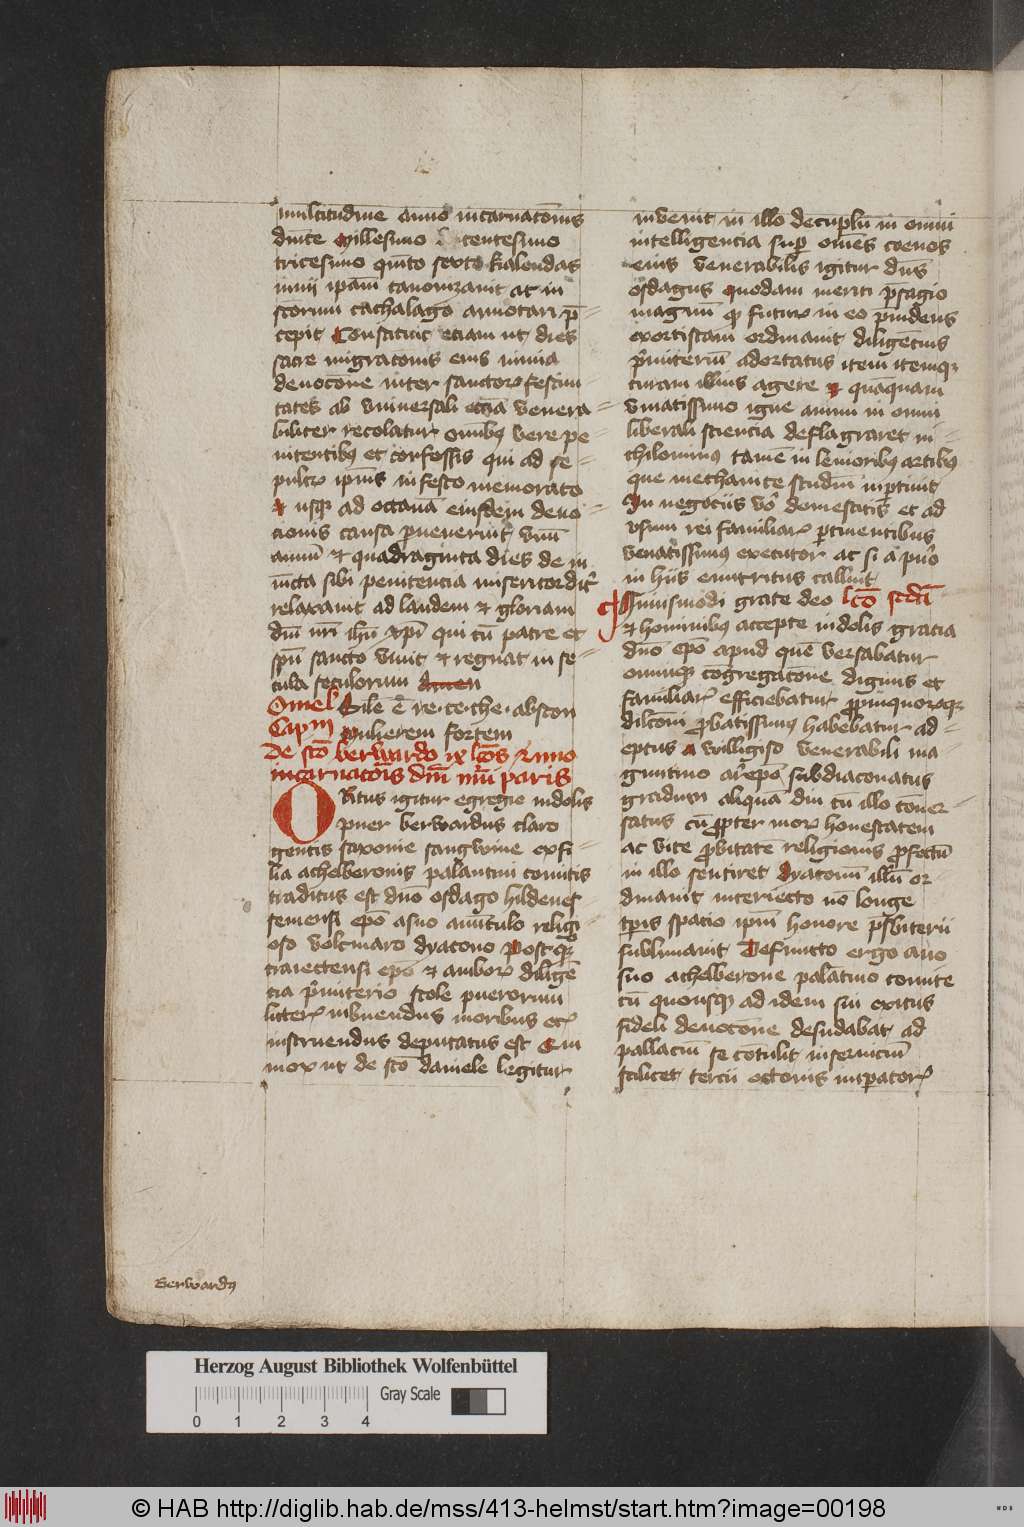 multitudine anno incarnatōnis
dn̄ice Millesimo ducentesimo
tricesimo quīto sexto kalendas
iunii ipam canonizauit ac in
sc̄torum cathalago annotari p̄-
cepit Constituit etiam ut dies
sacre migratōnis eius nimia
deuocōne inter sanctorꝝ festiui-
tates ab vniuersali ecc̄ia venera-
biliter recolatur omībꝰ vere pe
nitentibꝰ et confessis qui ad se-
pulcrꝝ ipīus in festo memorato
& usqꝫ ad octauā eiusdem deuo-
cionis causa puenerint vnū
annū et quadraginta dies de in
iūcta sibi penitencia misericordit̾
relaxauit ad laudem et gloriam
dn̄i nr̄i ihū xp̄i qui cū patre et
spū sancto viuit et regnat in se-
cula seculorum Amen
Omel' Sile ē re. ce. the. abscon
Capm̄ Mulierem fortem
De sc̄o berwardo ix lc̄os Anno
incarnatōis dn̄i nr̄i paris
Ortus igitur egregie indolis
puer berwardus claro
gentis saxonie sangwine ex fi-
lia athelberonis palantini comitis
traditus est dn̄o osdago hildenes-
semensi epō a suo auūculo religi
oso volcmaro dyacono postqꝫ
traiectensi epō et amborꝝ diligē
cia p̄miterio scole puerorum
litterꝝ inbuendus moribus ecꝫ
instruendus deputatus est Qui
mox ut de sc̄o daniele legitur
inuenit in illo decuplū in omni
intelligencia sup om̄es coeuos
eius venerabilis igitur dn̄s
osdagus quodam meriti p̄sagio
magnū qꝫ futurꝝ in eo puidens
exorcistam ordinauit diligēcius
p̄miteriū adortatus item itemqꝫ
curam illius agere et quāquam
viuatissimo igne animi in omni
liberali sciencia deflagraret ni-
chilominꝰ tamē in leuioribꝰ artibꝰ
que mechanice studiū inptiuit
In negociis vō domesticis et ad
vsum rei familiarꝝ ptinentibus
venatissimus executor ac si a puō
in hiis enutritus calluit
Huiusmodi grate deo lc̄o scdā
et hominibꝰ accepte indolis gracia
dn̄o epō apud quē versabatur
omniqꝫ cōgregatōne dignus et
familiarꝝ efficiebatur ppinquorꝫqꝫ
dilcōni pbatissimꝰ habebatur ad-
eptus a willigiso venerabili ma-
guntino arc̄epō subdiaconatus
gradum aliquā diu cū illo cōuer-
satus cū ppter morꝝ honestatem
ac vite pbitate religionis pfectū
in illo sentiret dyaconū illū or-
dinauit interiecto nō longe
tpis spatio ipm̄ honore p̄sbiterii
sublimauit Defuncto ergo auo
suo athelberone palātino comite
cū quousqꝫ ad idem sui exitus
fideli deuocōne desudabat ad
pallaciū se cōtulit in seruiciū
scilicet tercii octonis inpatorꝝ
Berwardꝰ
Herzog August Bibliothek Wolfenbüttel
0 1 2 3 4 Gray Scale
© HAB http://diglib.hab.de/mss/413-helmst/start.htm?image=00198